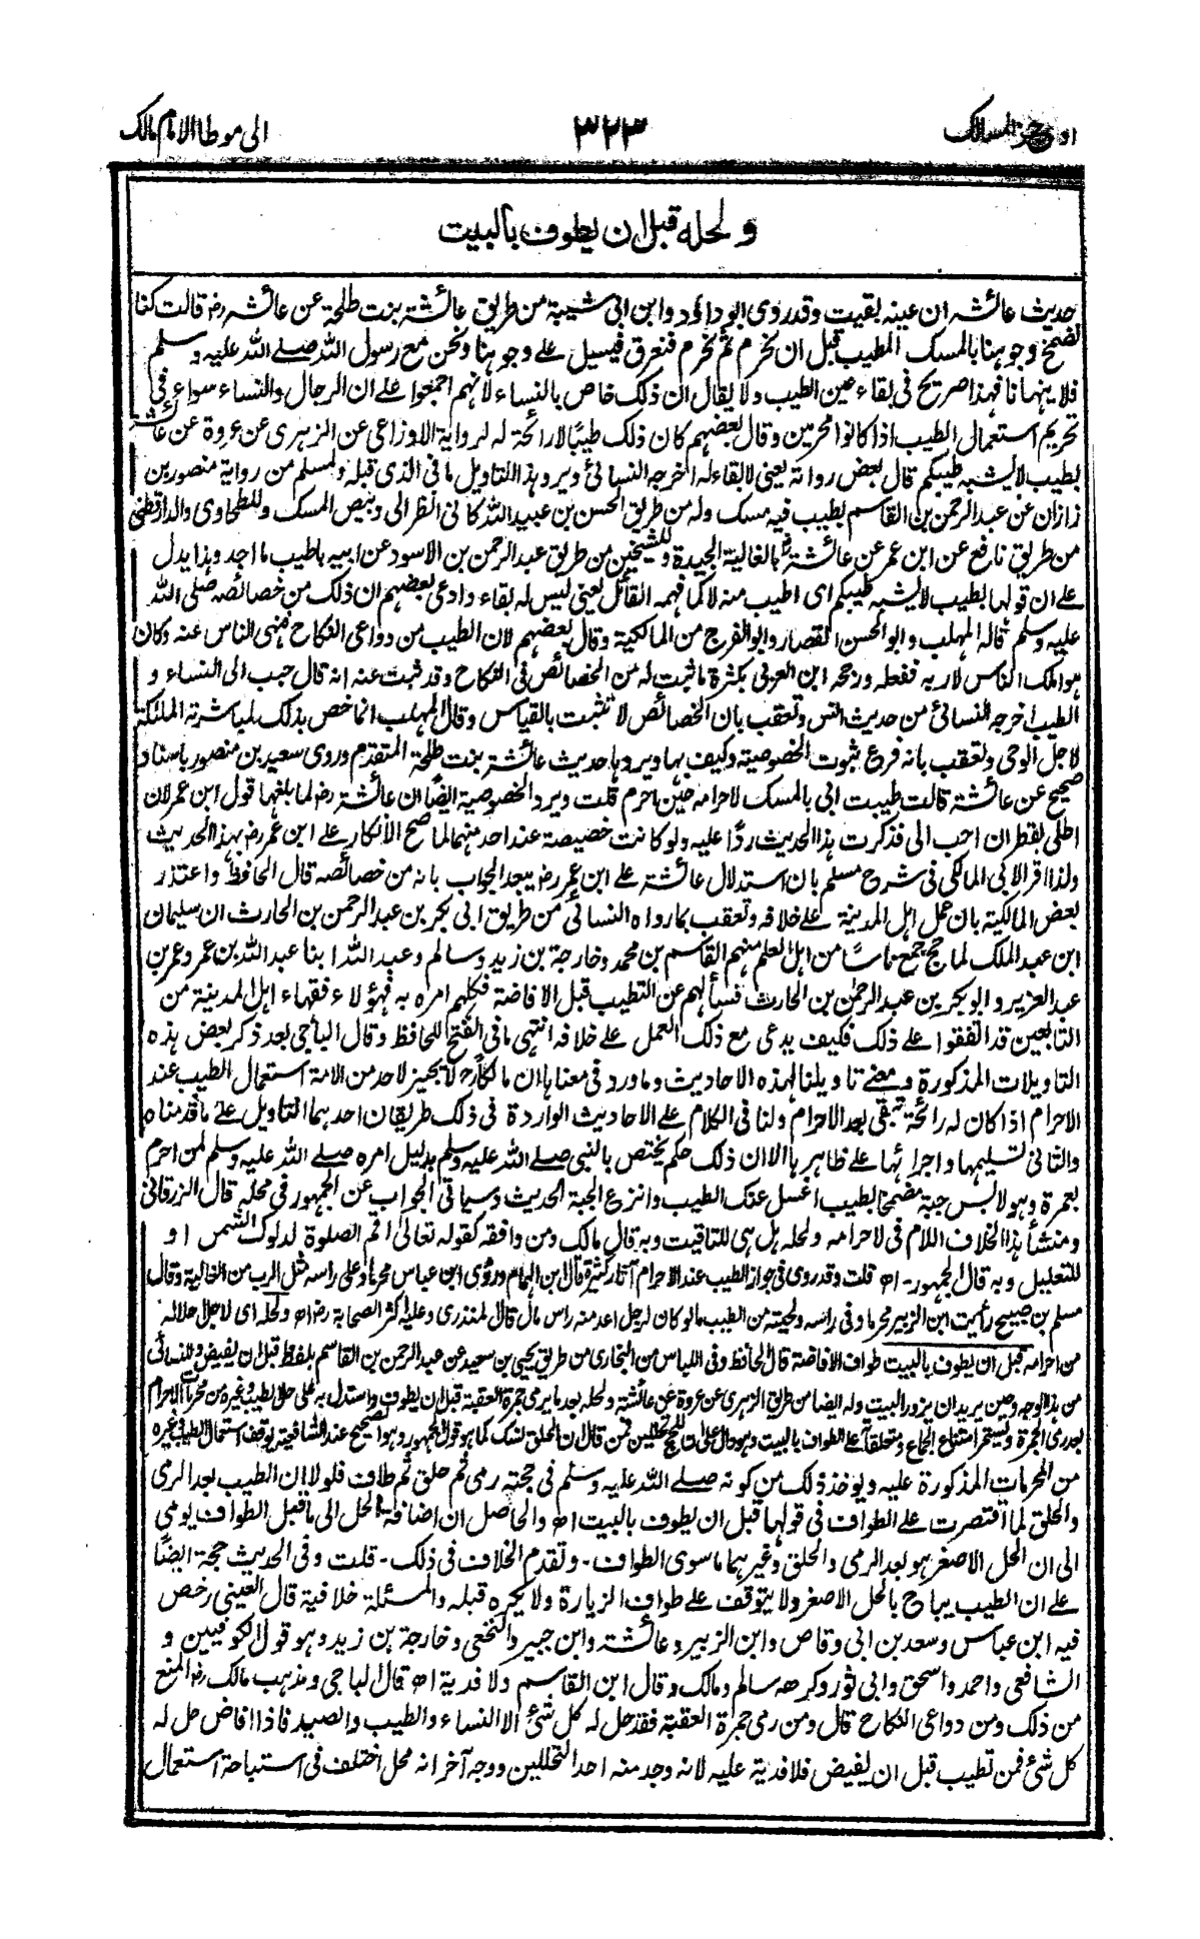 اوجز المسالك
٣٢٣
الى موطا الامام مالك
ولحله قبل ان يطوف بالبيت
حديث عائشة ان عينه بقيت وقد روى ابو داؤد وابن ابى شيبة من طريق عائشة بنت طلحة عن عائشة رض قالت كنا
نضمخ وجوهنا بالمسك المطيب قبل ان نحرم ثم نحرم فنعرق فيسيل على وجوهنا ونحن مع رسول الله صلے الله عليه وسلم
فلا ينهانا فهذا صريح فى بقاء عين الطيب ولا يقال ان ذلك خاص بالنساء لانهم اجمعوا على ان الرجال والنساء سواء فى
تحريم استعمال الطيب اذا كانوا محرمين وقال بعضهم كان ذلك طيبا لا رائحة له لرواية الاوزاعى عن الزهرى عن عروة عن عائشة
بطيب لا يشبه طيبكم قال بعض رواته يعنى لا بقاء له اخرجه النسائى ويرد هذا التاويل ما فى الذى قبله ولمسلم من رواية منصور بن
زازان عن عبد الرحمن بن القاسم بطيب فيه مسك وله من طريق الحسن بن عبيد الله كانى انظر الى وبيص المسك وللطحاوى والدارقطنى
من طريق نافع عن ابن عمر عن عائشة رض بالغالية الجيدة وللشيخين من طريق عبد الرحمن بن الاسود عن ابيه باطيب ما اجد وهذا يدل
على ان قولها بطيب لا يشبه طيبكم اى اطيب منه لا كما فهمه القائل يعنى ليس له بقاء وادعى بعضهم ان ذلك من خصائصه صلى الله
عليه وسلم قاله المهلب وابو الحسن القصار وابو الفرج من المالكية وقال بعضهم لان الطيب من دواعى النكاح فنهى الناس عنه وكان
هو املك الناس لاربه ففعله ورجحه ابن العربى بكثرة ما ثبت له من الخصائص فى النكاح وقد ثبت عنه انه قال حبب الى النساء و
الطيب اخرجه النسائى من حديث انس وتعقب بان الخصائص لا تثبت بالقياس وقال المهلب انما خص بذلك لمباشرته الملئكة
لاجل الوحى وتعقب بانه فرع ثبوت الخصوصية وكيف بها ويردها حديث عائشة بنت طلحة المتقدم وروى سعيد بن منصور باسناد
صحيح عن عائشة قالت طيبت ابى بالمسك لاحرامه حين احرم قلت ويرد الخصوصية ايضا ان عائشة رض لما بلغها قول ابن عمر لان
اطلى بقطران احب الى فذكرت هذا الحديث ردا عليه ولو كانت خصيصة عند احد منهما لما صح الانكار على ابن عمر رض بهذا الحديث
ولذا اقر الابى المالكى فى شرح مسلم بان استدلال عائشة على ابن عمر رض يبعد الجواب بانه من خصائصه قال الحافظ واعتذر
بعض المالكية بان عمل اهل المدينة على خلافه وتعقب بما رواه النسائى من طريق ابى بكر بن عبد الرحمن بن الحارث ان سليمان
ابن عبد الملك لما حج جمع ناسا من اهل العلم منهم القاسم بن محمد وخارجة بن زيد وسالم وعبد الله ابنا عبد الله بن عمر وعمر بن
عبد العزيز وابو بكر بن عبد الرحمن بن الحارث فسألهم عن التطيب قبل الافاضة فكلهم امره به فهؤلاء فقهاء اهل المدينة من
التابعين قد اتفقوا على ذلك فكيف يدعى مع ذلك العمل على خلافه انتهى ما فى الفتح للحافظ وقال الباجى بعد ذكر بعض هذه
التاويلات المذكورة ومعنے تاويلنا لهذه الاحاديث وما ورد فى معناها ان مالكا رح لا يجيز لاحد من الامة استعمال الطيب عند
الاحرام اذا كان له رائحة تبقى بعد الاحرام ولنا فى الكلام على الاحاديث الواردة فى ذلك طريقان احدهما التاويل على ما قدمناه
والثانى تسليمها واجرائها على ظاهرها الا ان ذلك حكم يختص بالنبى صلے الله عليه وسلم بدليل امره صلے الله عليه وسلم لمن احرم
بعمرة وهو لابس جبة مضمخا بطيب اغسل عنك الطيب وانزع الجبة الحديث وسياتى الجواب عن الجمهور فى محله قال الزرقانى
ومنشأ هذا الخلاف اللام فى لاحرامه ولحله هل هى للتاقيت وبه قال مالك ومن وافقه كقوله تعالى اقم الصلوة لدلوك الشمس او
للتعليل وبه قال الجمهور - اھ قلت وقد روى فى جواز الطيب عند الاحرام آثار كثيرة قال ابن الهمام ورؤى ابن عباس محرما وعلى راسه مثل الرب من الغالية وقال
مسلم بن صبيح رأيت ابن الزبير محرما وفى راسه ولحيته من الطيب ما لو كان لرجل اعد منه راس مال قال المنذرى وعليه اكثر الصحابة رض اھ ولحله اى لاجل حلاله
من احرامه قبل ان يطوف بالبيت طواف الافاضة قال الحافظ وفى اللباس من البخارى من طريق يحيى بن سعيد عن عبد الرحمن بن القاسم بلفظ قبل ان يفيض وللنسائى
من هذا الوجه وحين يريد ان يزور البيت وله ايضا من طريق الزهرى عن عروة عن عائشة ولحله بعد ما يرمى جمرة العقبة قبل ان يطوف واستدل به على حل الطيب وغيره من محرمات الاحرام
بعد رمى الجمرة ويستمر امتناع الجماع ومتعلقاته على الطواف بالبيت وهو دال على ان للحج تحللين فمن قال ان الحلق نسك كما هو قول الجمهور وهو الصحيح عند الشافعية يوقف استعمال الطيب وغيره
من المحرمات المذكورة عليه ويوخذ ذلك من كونه صلے الله عليه وسلم فى حجته رمى ثم حلق ثم طاف فلولا ان الطيب بعد الرمى
والحلق لما اقتصرت على الطواف فى قولها قبل ان يطوف بالبيت اھ والحاصل ان اضافة الحل الى ما قبل الطواف يومى
الى ان الحل الاصغر هو بعد الرمى والحلق وغيرهما ما سوى الطواف - وتقدم الخلاف فى ذلك - قلت وفى الحديث حجة ايضا
على ان الطيب يباح بالحل الاصغر ولا يتوقف على طواف الزيارة ولا يكره قبله والمسئلة خلافية قال العينى رخص
فيه ابن عباس وسعد بن ابى وقاص وابن الزبير وعائشة وابن جبير والنخعى وخارجة بن زيد وهو قول الكوفيين و
الشافعى واحمد واسحق وابى ثور وكرهه سالم ومالك وقال ابن القاسم ولا فدية اھ قال الباجى ومذهب مالك رض المنع
من ذلك ومن دواعى النكاح قال ومن رمى جمرة العقبة فقد حل له كل شئ الا النساء والطيب والصيد فاذا افاض حل له
كل شئ فمن تطيب قبل ان يفيض فلا فدية عليه لانه وجد منه احد التحللين ووجه آخر انه محل اختلف فى استباحة استعمال